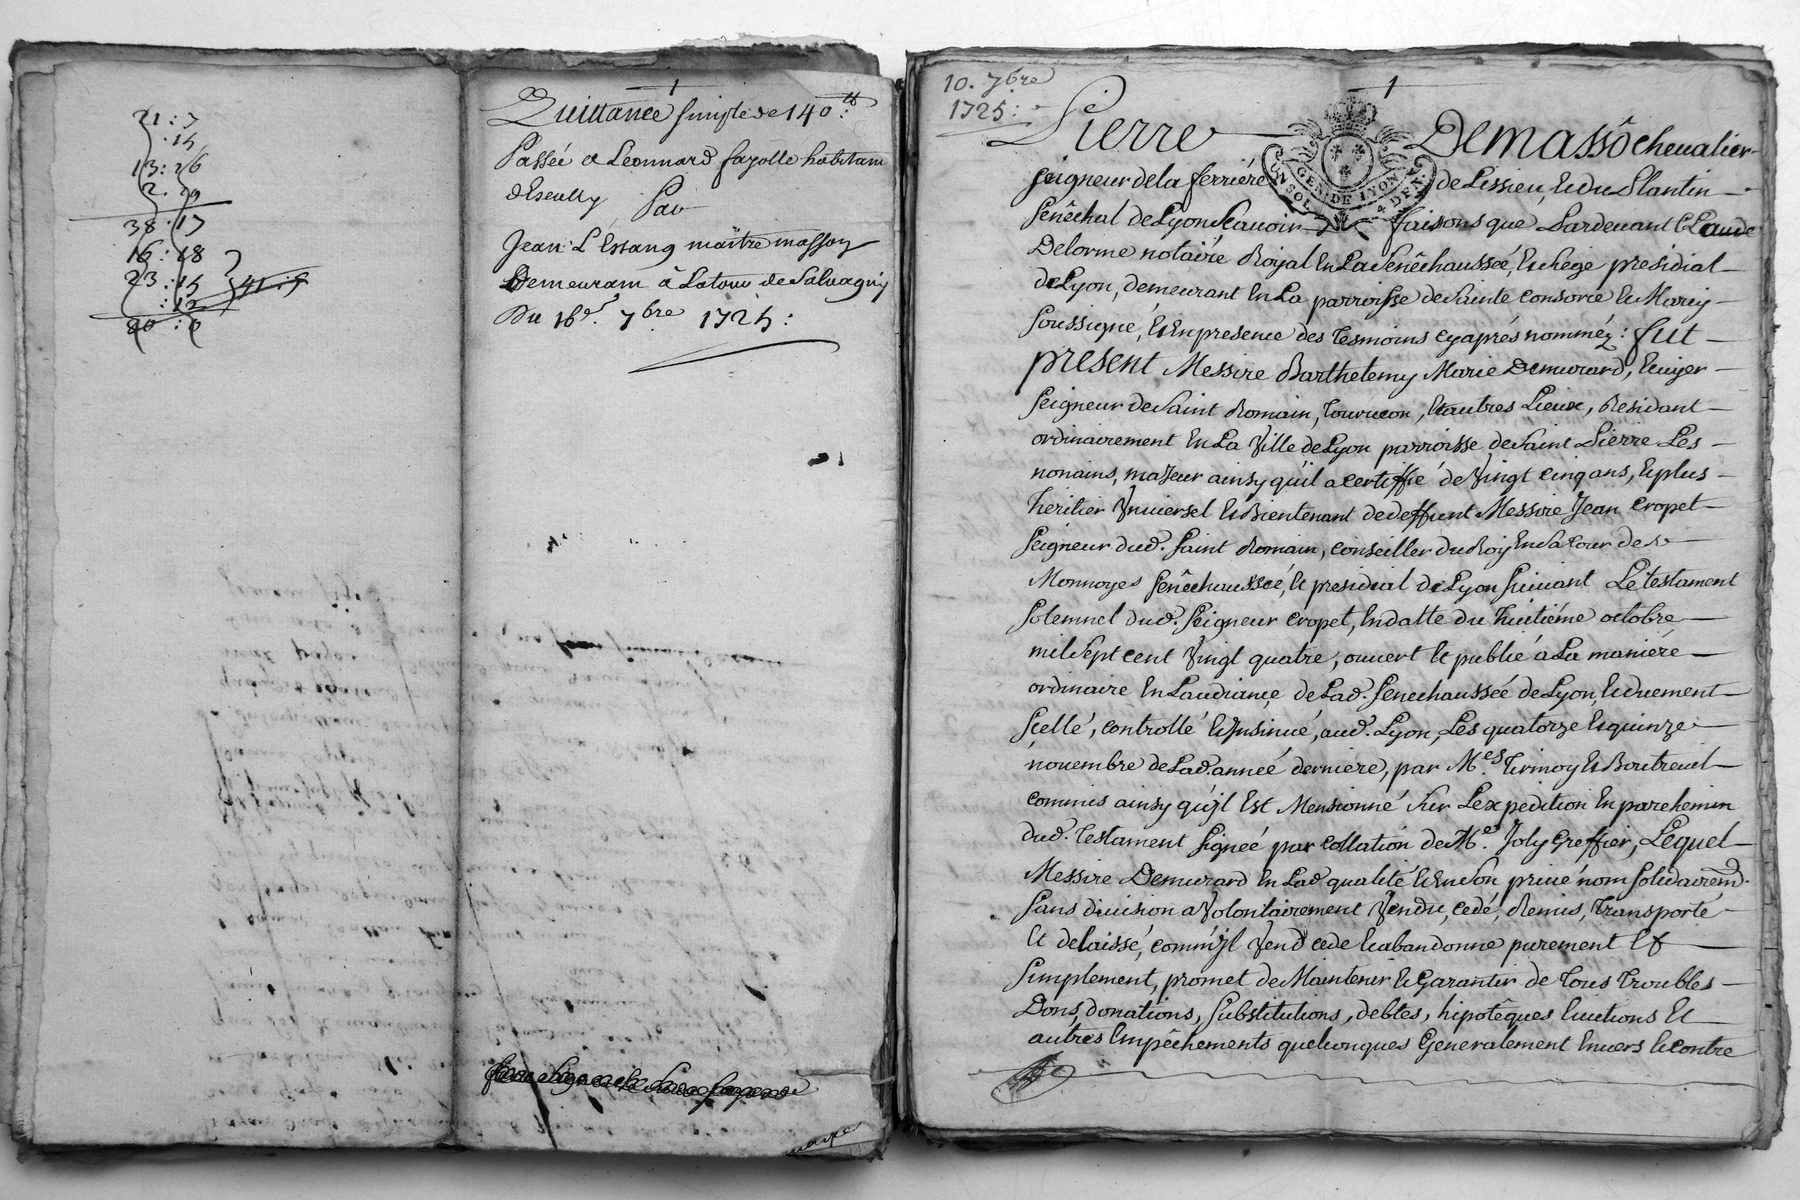 21 : 7
: 15
13 : 26
2 . 29
38 : 17
16 : 18
23 : 15
: 12
41 : 5
80 : 0
1
Quittance simple de 140 tt :
Passée a Léonnard fayolle habitant
d'Escully Par
Jean L'Estang maitre masson
Demeurant à Latour de Salvagny
Du 16e. 7bre 1725 :
10. 7bre
1725 :
1
Pierre Demassô chevalier
seigneur de la ferriére de Lissieu, et du Plantin
Senêchal de Lyon Scavoir faisons que Pardevant Claude
GEN. DE LYON
UN SOL 4 DEN.
Delorme notaire Royal En La Senêchaussée, et siege presidial
de Lyon, demeurant En La parroisse de Sainte Consorce et Marcy
soussigné, et En presence des tesmoins cy aprés nomméz : fut
present Messire Barthelemy Marie Demurard, Ecuyer
Seigneur de Saint Romain, Tourveon, et autres Lieux, Residant
ordinairement En La Ville de Lyon parroisse de Saint Pierre Les
nonains, majeur ainsy qu'il a certiffié de Vingt cinq ans, et plus
heritier Vniversel et Bientenant de deffunt Messire Jean Cropet
Seigneur dud. Saint Romain, conseiller du Roy En Sa Cour des
Monnoyes Senêchaussée, et presidial de Lyon suivant Le testament
solemnel dud. Seigneur Cropet, En datte du huitiéme octobre
mil Sept cent Vingt quatre, ouvert et publié à La maniére
ordinaire En Laudiance, de Lad. Senechaussée de Lyon, et duement
scellé, controllé et Insinué, aud. Lyon, Les quatorze et quinze
novembre de Lad. année derniere, par Mes. Tirmoy et Boutreuil
commis ainsy qu'jl Est Mensionné sur L'expedition En parchemin
dud. testament signée par collation de Me. Joly Greffier, Lequel
Messire Demurard En Lad. qualité et En son privé nom solidairemt.
sans division a Volontairement Vendu, cedé, Remis, Transporté
Et delaissé, comm'jl Vend cede et abandonne purement Et
simplement, promet de Maintenir et Garantir de tous Troubles
Dons, donations, substitutions, debtes, hipotêques Evictions Et
autres Empêchements quelconques Generalement Envers et contre